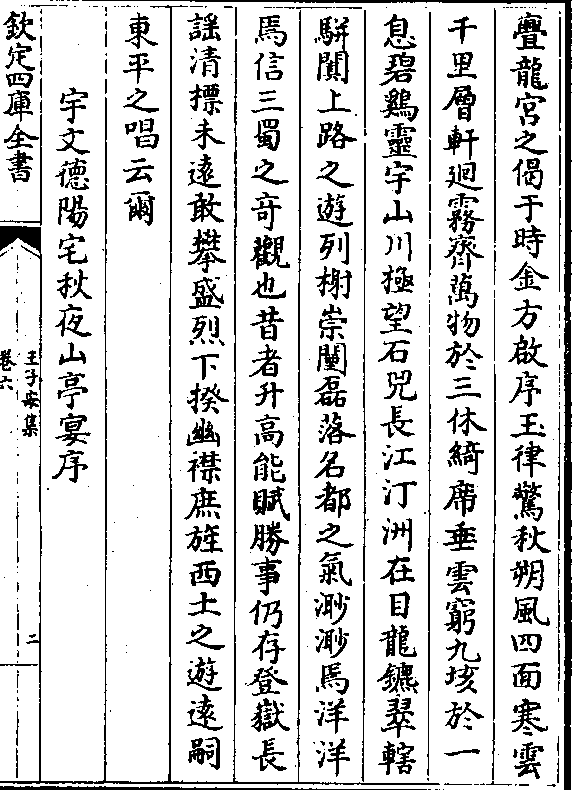 疊龍宮之偈于時金方啟序玉律驚秋朔風四面寒雲
千里層軒迴霧齊萬物於三休綺席垂雲窮九垓於一
息碧鷄靈宇山川極望石兕長江汀洲在目龍鑣翠轄
駢闐上路之遊列榭崇闉磊落名都之氣渺渺焉洋洋
焉信三蜀之竒觀也昔者升高能賦勝事仍存登嶽長
謡清摽未遠敢攀盛烈下揆幽襟庶旌西土之遊遠嗣
東平之唱云爾
宇文德陽宅秋夜山亭宴序
欽定四庫全書
王子安集
卷六
二